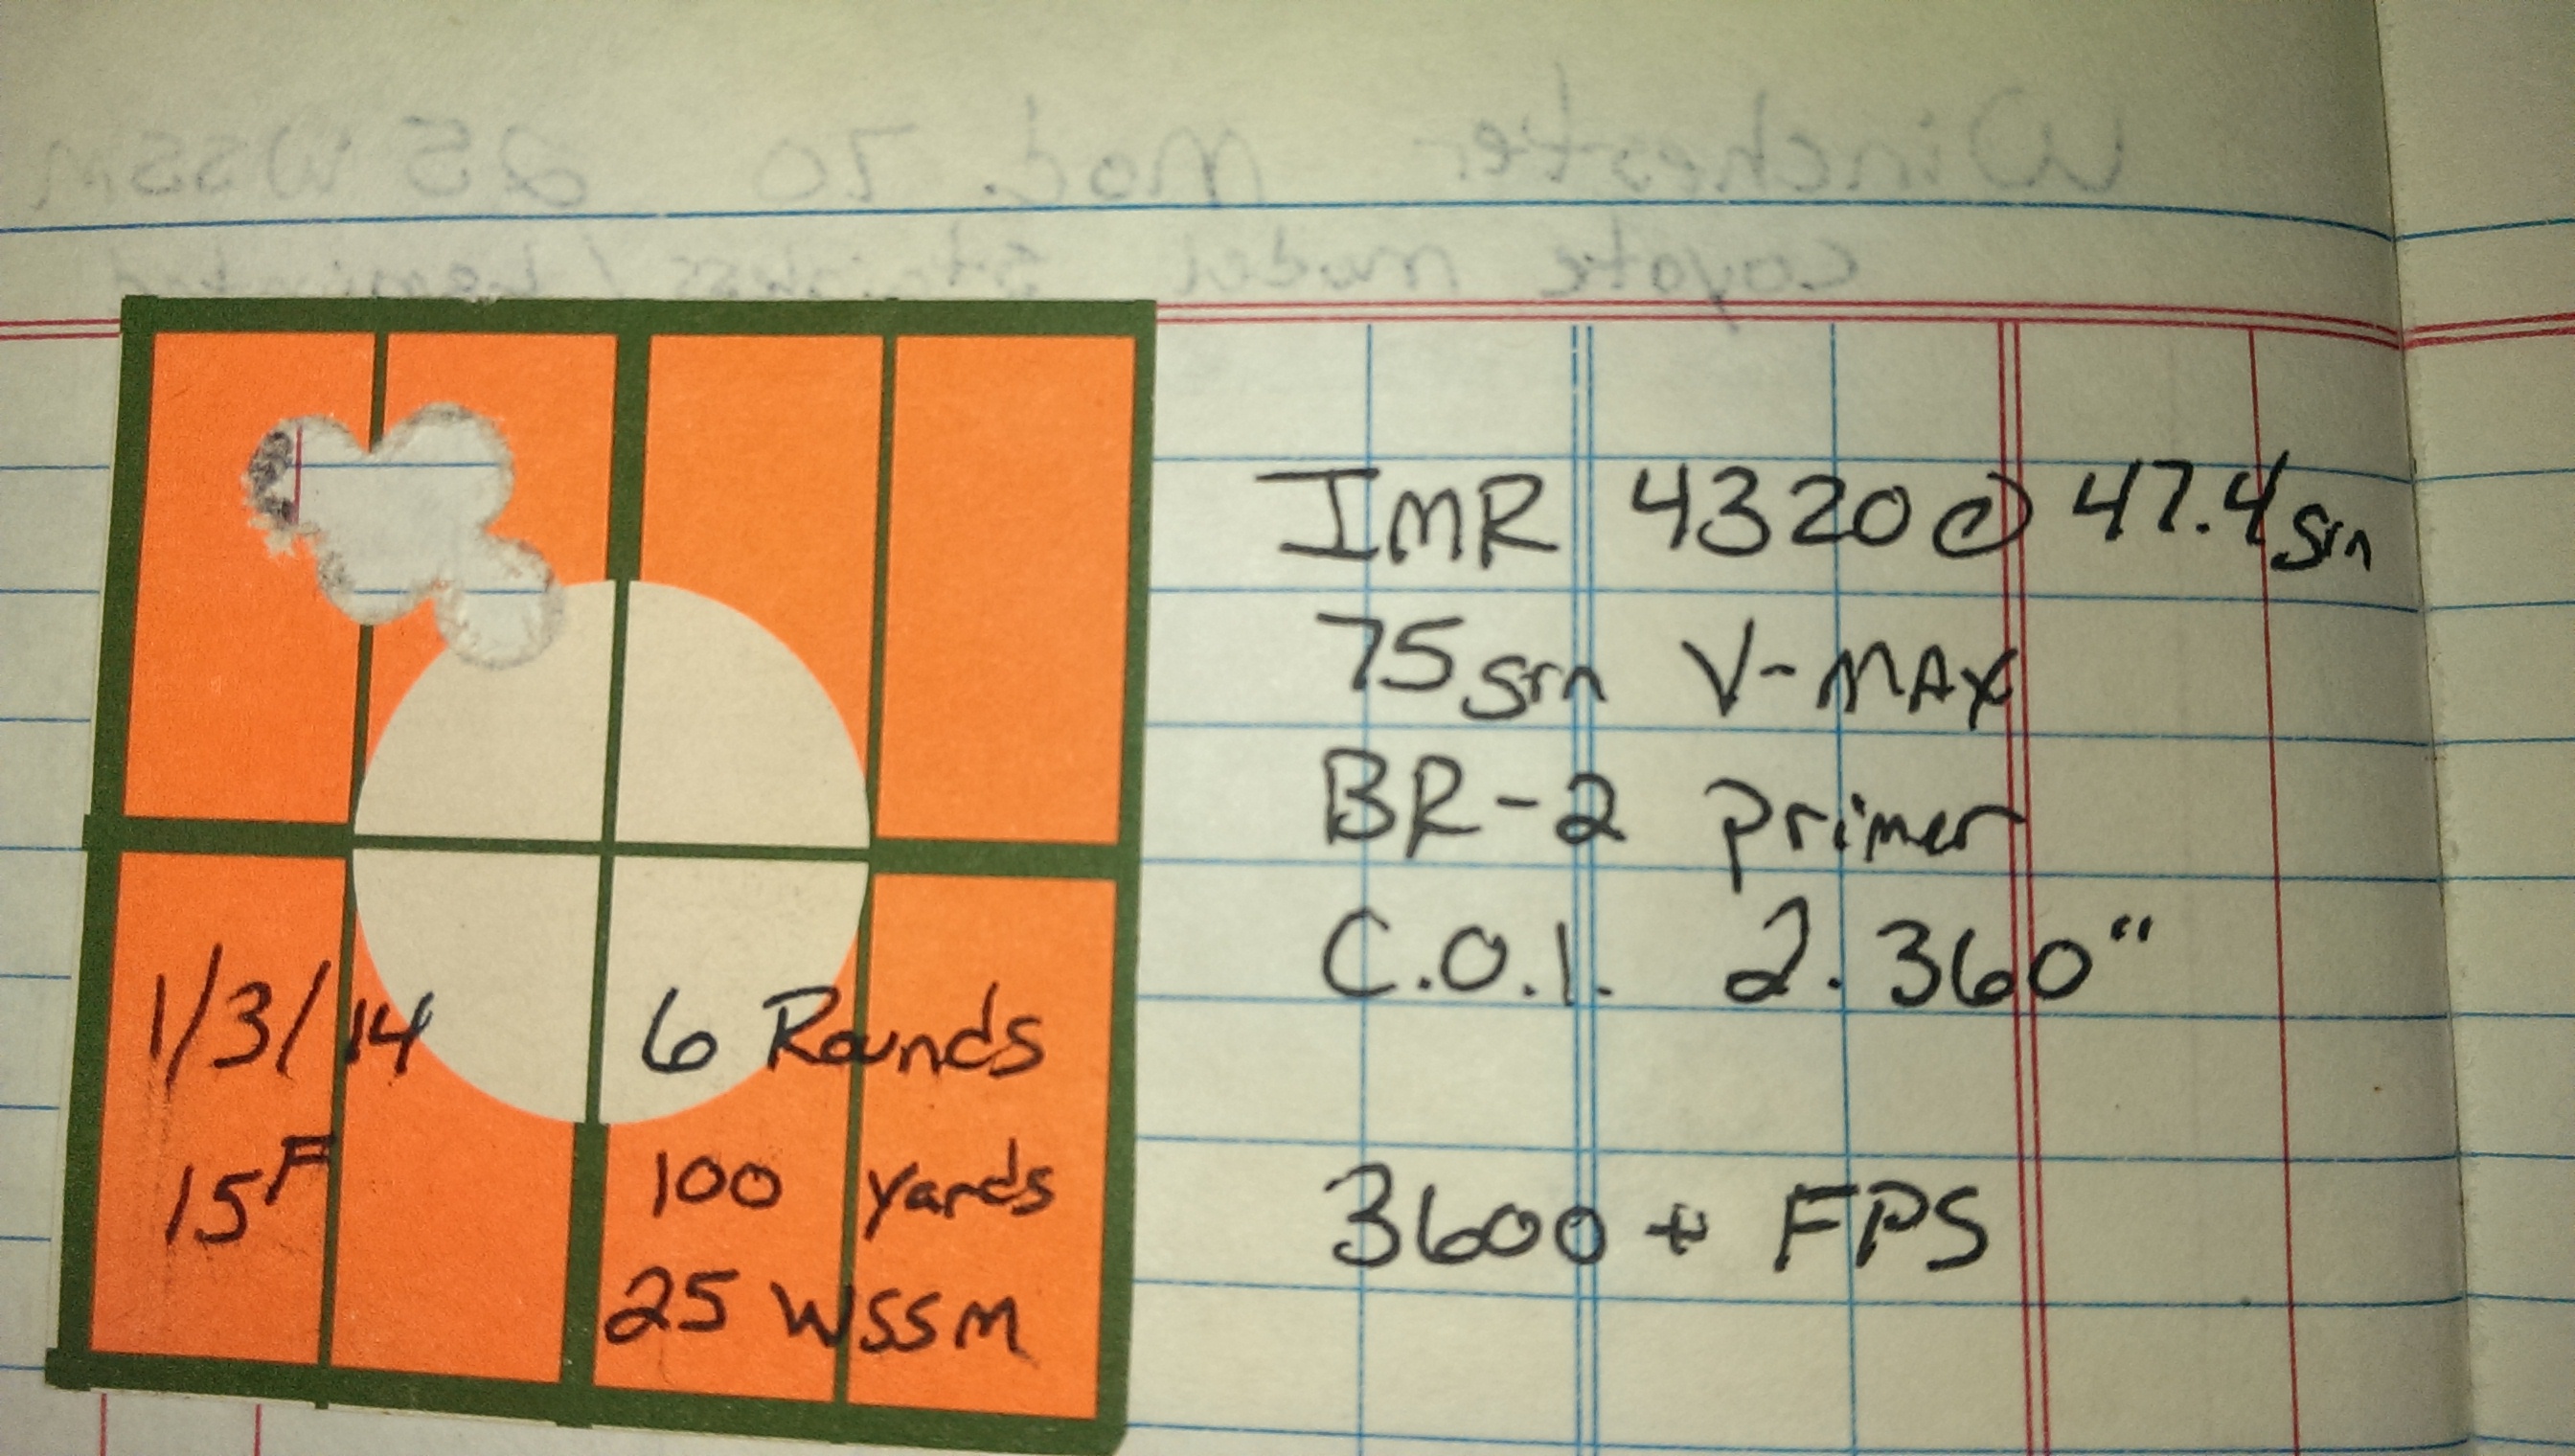 Winchester Mod. 70 25 WSSM
coyote model stainless / laminated
IMR 4320 @ 47.4 grn
75 grn V-MAX
BR-2 primer
C.O.l. 2.360"
3600 + FPS
1/3/14
15F
6 Rounds
100 yards
25 WSSM